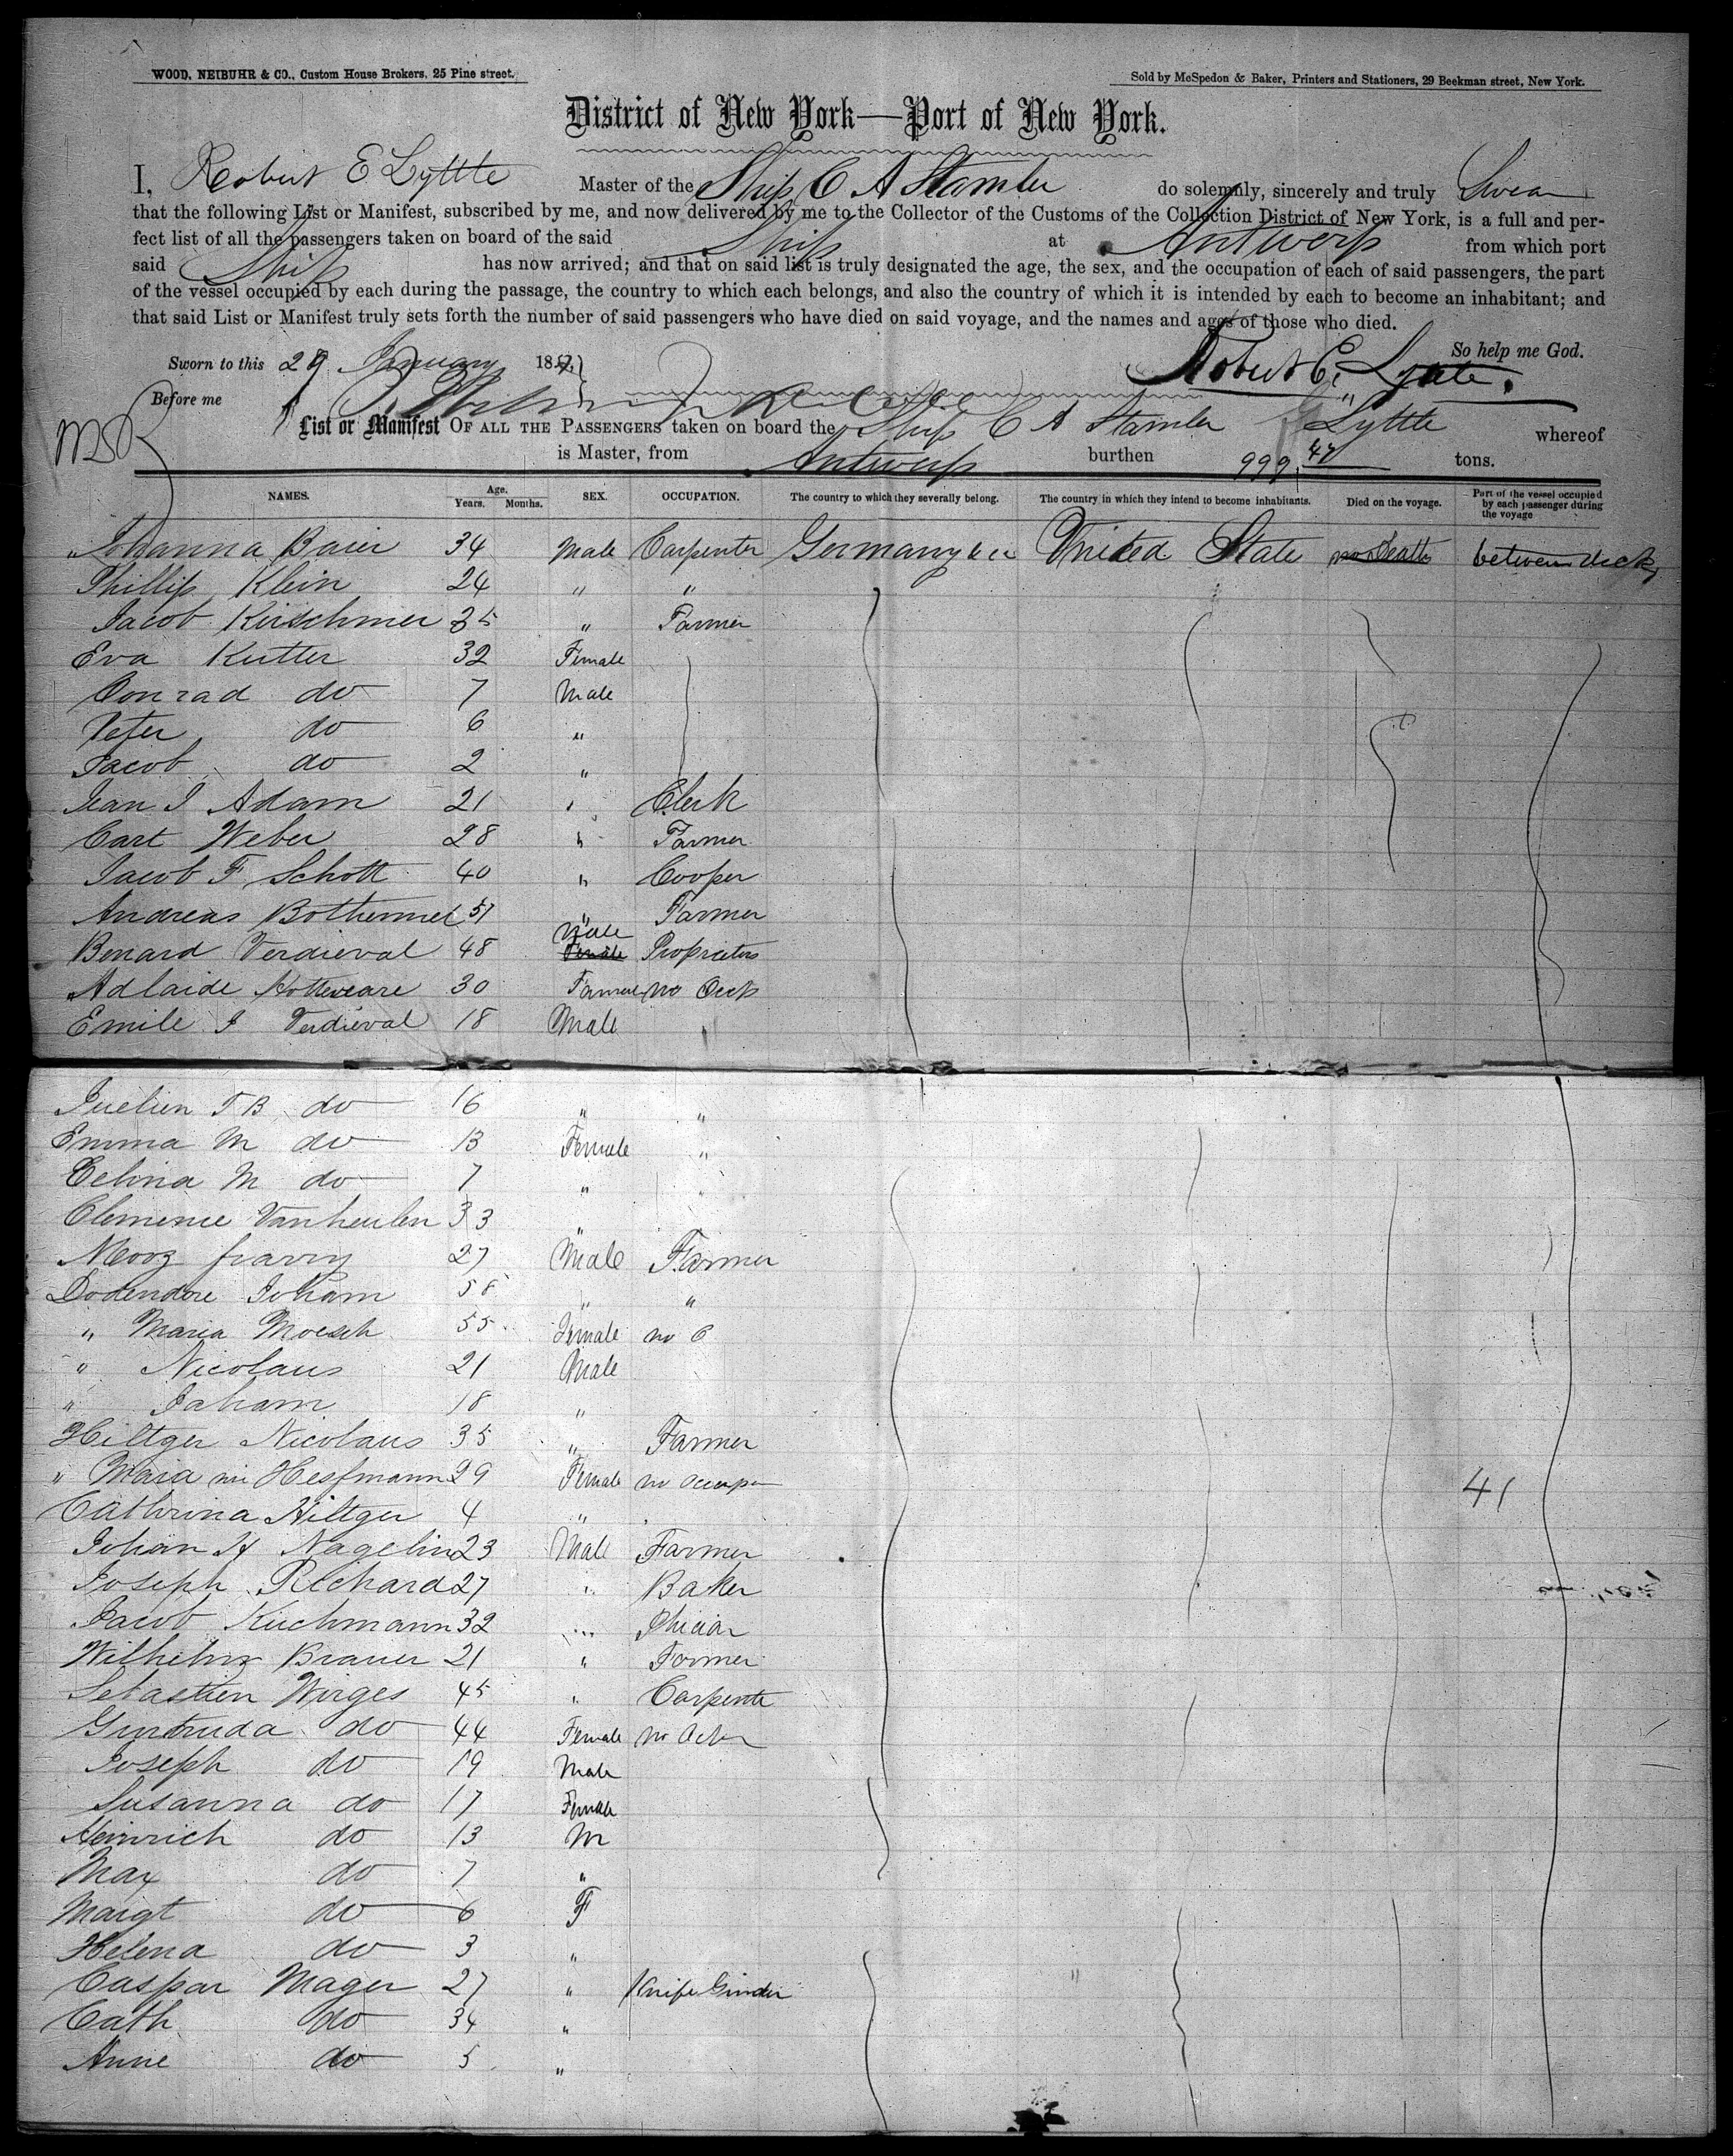 WOOD, NEIBUHR & CO., Custom House Brokers, 25 Pine street.
Sold by McSpedon & Baker, Printers and Stationers, 29 Beekman street, New York.
District of New York—Port of New York.
I, Robert E Lyttle Master of the Ship C A Stamler do solemnly, sincerely and truly Swear
that the following List or Manifest, subscribed by me, and now delivered by me to the Collector of the Customs of the Collection District of New York, is a full and per-
fect list of all the passengers taken on board of the said Ship at Antwerp from which port
said Ship has now arrived; and that on said list is truly designated the age, the sex, and the occupation of each of said passengers, the part
of the vessel occupied by each during the passage, the country to which each belongs, and also the country of which it is intended by each to become an inhabitant; and
that said List or Manifest truly sets forth the number of said passengers who have died on said voyage, and the names and ages of those who died.
So help me God.
Sworn to this 29 January 185
Robert E. Lyttle.
Before me
List or Manifest OF ALL THE PASSENGERS taken on board the Ship C A Stamler Lyttle whereof
is Master, from Antwerp burthen 999 47 tons.
NAMES. Age. Years. Months. SEX. OCCUPATION. The country to which they severally belong. The country in which they intend to become inhabitants. Died on the voyage. Part of the vessel occupied by each passenger during the voyage
Johanna Baier 34 Male Carpenter Germany United State no Death between deck
Phillip Klein 24 " "
Jacob Kirschmer 35 " Farmer
Eva Kutter 32 Female
Conrad do 7 Male
Peter do 6 "
Jacob do 2 "
Jean J Adam 21 " Clerk
Carl Weber 28 " Farmer
Jacob F Schott 40 " Cooper
Andreas Bothermel 51 " Farmer
Benard Verdieval 48 Male Female Proprietor
Adlaide 30 no Occp
Emile J Verdieval 18 Male "
Juelien T B do 16 " "
Emma M do 13 Female "
Celina M do 7 " "
Clemence Vanheulen 33 "
27 Male Farmer
Joham 58 " "
" Maria Moesch 55 Female no O
" Nicolaus 21 Male
" Joham 18 "
Hiltger Nicolaus 35 " Farmer
" Maria 29 Female no occup
41
Cathrina Hiltger 4 "
Johan H Nagelin 23 Male Farmer
Joseph Richard 27 " Baker
Jacob Kuchmann 32 "
Wilhelm Brauer 21 " Farmer
Sebastien Wirges 45 " Carpente
Gurtruda do 44 Female no
Joseph do 19 Male
Susanna do 17 Female
Heinrich do 13 M
Max do 7 "
Margt do 6 F
Helena do 3 "
Caspar Mager 27 " Knife Grinder
Cath do 34 "
Anne do 5 "